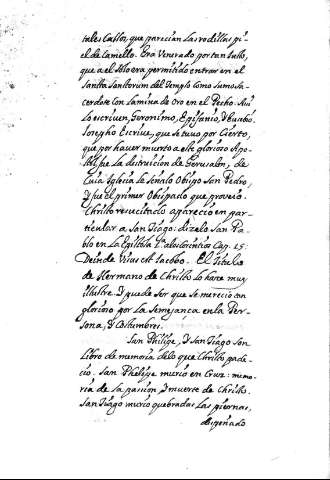 tales Callos, que parecian las rodillas pi-
el de Camello. Era Venerado por tan justo,
que a el solo era permitido entrar en el
Santa Santorum del Templo como Sumo Sa-
cerdote con Lamina de oro en el Pecho. Assi
lo escriven, Geronimo, Epifanio, Y Eusebio
Josepho Escrive, que se tuvo por Cierto,
que por haver muerto a este glorioso Apo-
stol, fue La destruicion de Gerusalen, de
Cuia Iglesia le señalo Obispo San Pedro,
Y fue el primer Obispado que proveio.
Christo resucitado aparecio en par-
ticular a San Tiago: dizelo San Pa-
blo en La Epistola 1ª a los Corintios Cap. 15:
Deinde Visus est Iacobo. El titulo
de Hermano de Christo lo haze muy
illustre. Y puede ser que se merecio con
glorioso por La Semejança en la Per-
sona, Y Costumbres.
San Philipe, Y San Tiago son
Libro de memoria de lo que Christo pade-
cio. San Phelipe murio en Cruz: memo-
ria de La passion, Y muerte de Christo.
San Tiago murio quebradas Las piernas,
despeñado